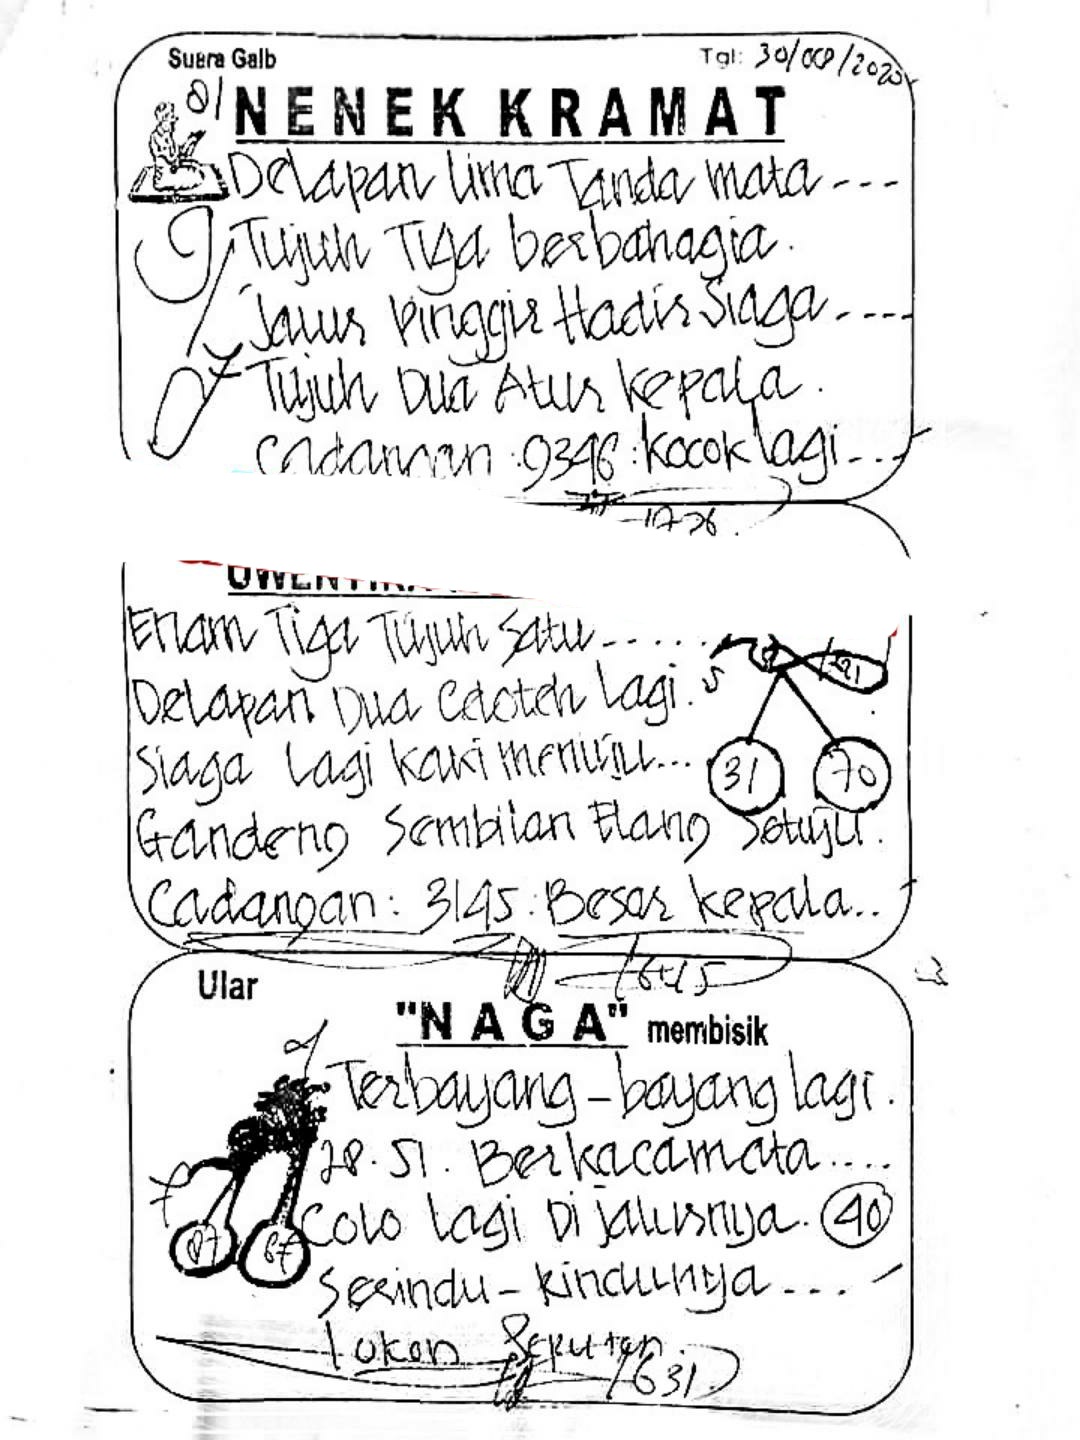 Suara Gaib
Tgl: 30/
NENEK KRAMAT
Delapan lima Tanda mata ---
Tujuh Tiga berbahagia.
Jalur Pinggir Hadir Siaga ----
Tujuh Dua Atur kepala.
Cadangan : 9346 : kocok lagi ---
Enam Tiga Tujuh Satu ......
Delapan Dua Cdoteh lagi. 5
Siaga Lagi kaki menuju... 31 70
Gandeng Sembilan Elang Setuju.
Cadangan : 3145 : Besar kepala..
1645
Ular
"NAGA" membisik
Terbayang-bayang lagi.
28.51. Berkacamata....
7
Colo lagi Di jalurnya. 40
87 67
Serindu-rindunya ....
1631